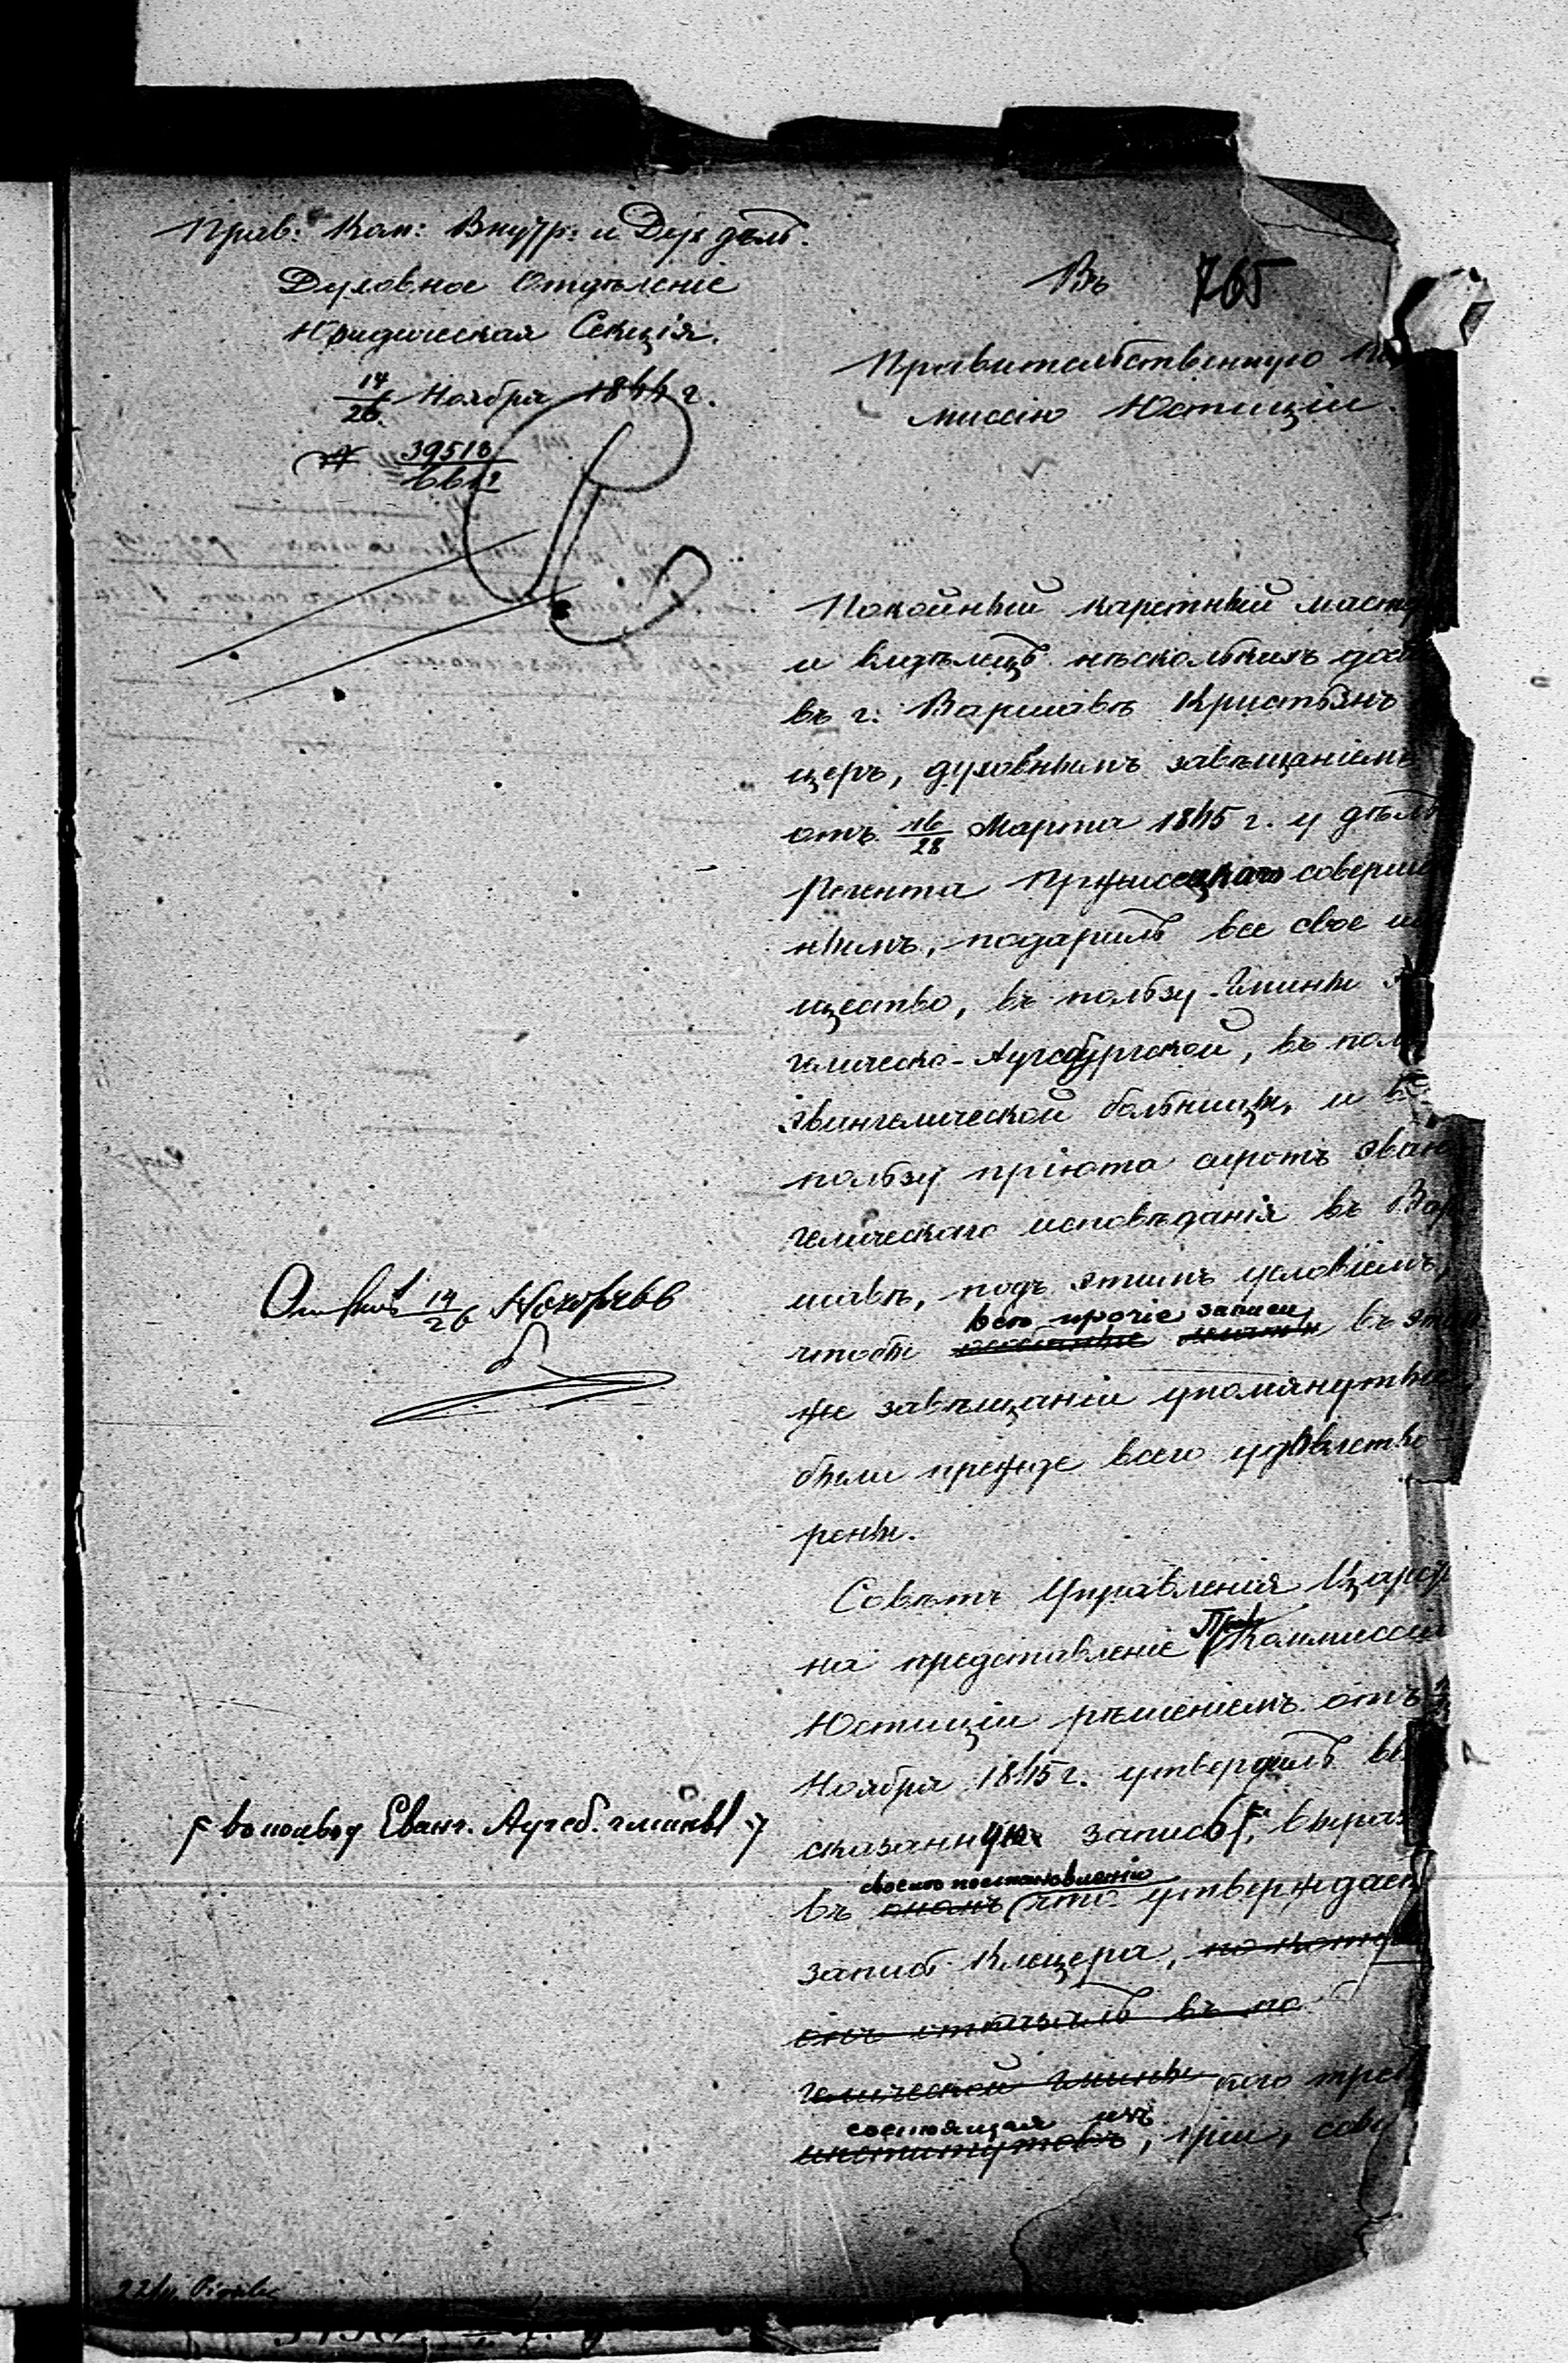 Прав: Ком: Внутр: и Дух дѣлъ.
Духовное Отдѣленіе
Юридическая Секція.
14/26 Ноября 1844 г.
№ 39518
765
Въ
Правительственную
миссію Юстиціи.
Покойный каретный маст
и владѣлецъ нѣсколькихъ до
въ г. Варшавѣ Кристьянъ
церъ, духовнымъ завѣщаніемъ
отъ 16/28 Марта 1845 г. у дѣлъ
Регента совершен
нымъ, подарилъ все свое им
щество, въ пользу Гмины
гелическо-Аугсбургской, въ поль
Эвангелической больницы, и въ
пользу пріюта сиротъ Эван
гелическаго исповѣданія въ Вар
шавѣ, подъ этимъ условіемъ,
всѣ прочіе записи
чтобы въ этом
же завѣщаніи упомянутые,
были прежде всего удовлетво-
рены.
Совѣтъ Управленія Царст
на представленіе Прав Коммиссіи
Юстиціи рѣшеніемъ отъ
Ноября 1845 г. утвердилъ вы
сказанную запись, выраз
въ своемъ постановленіи что утверждает
запись Клецера, по котор
онъ отказалъ въ по
гелической Гмины кого треб
состоящая изъ
институтовъ, при, сов
14/26 Ноября
въ пользу Еванг. Аугсб. гмины